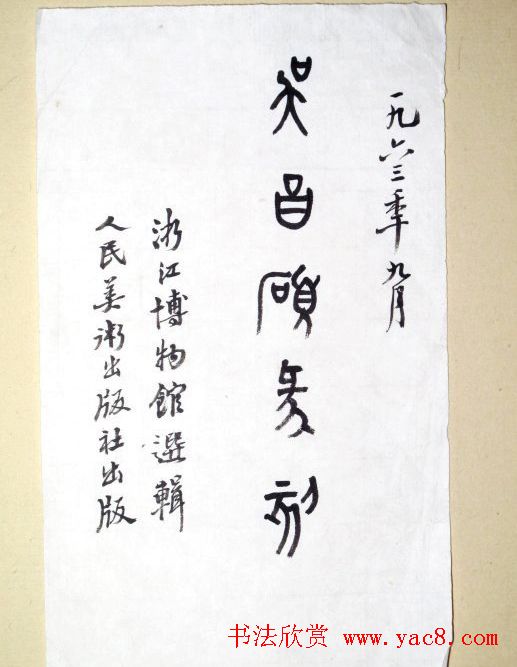 一九六三年九月
吳昌碩篆刻
浙江博物館選輯
人民美術出版社出版
书法欣赏 www.yac8.com